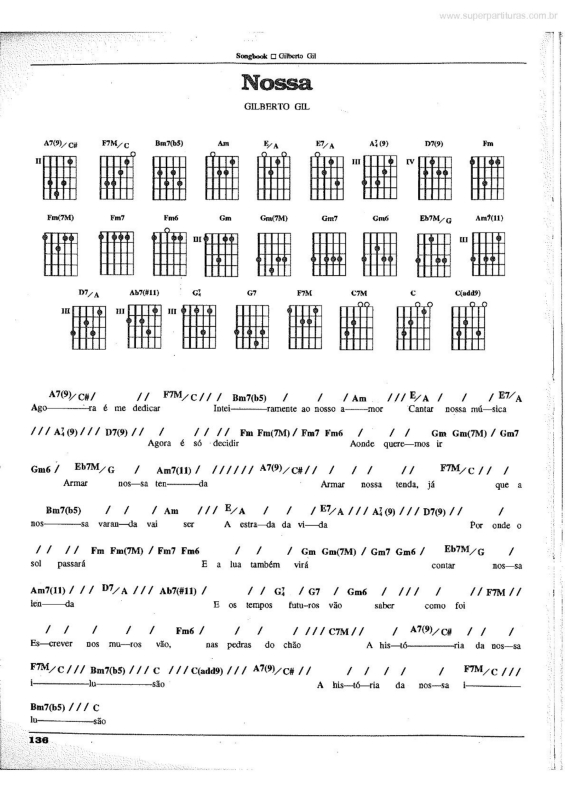 www.superpartituras.com.br
Songbook □ Gilberto Gil
Nossa
GILBERTO GIL
A7(9)/C# F7M/C Bm7(b5) Am E/A E7/A A⁷₄(9) D7(9) Fm
II III IV
Fm(7M) Fm7 Fm6 Gm Gm(7M) Gm7 Gm6 Eb7M/G Am7(11)
III III
D7/A Ab7(#11) G⁷₄ G7 F7M C7M C C(add9)
III III III
A7(9)/C# / / / F7M/C / / / Bm7(b5) / / / Am / / / E/A / / / E7/A
Ago———ra é me dedicar Intei———ramente ao nosso a——mor Cantar nossa mú—sica
/ / / A⁷₄(9) / / / D7(9) / / / / / / Fm Fm(7M) / Fm7 Fm6 / / / Gm Gm(7M) / Gm7
Agora é só decidir Aonde quere—mos ir
Gm6 / Eb7M/G / Am7(11) / / / / / / / A7(9)/C# / / / / / / / F7M/C / / /
Armar nos—sa ten——da Armar nossa tenda, já que a
Bm7(b5) / / / Am / / / E/A / / / E7/A / / / A⁷₄(9) / / / D7(9) / / /
nos———sa varan—da vai ser A estra—da da vi—da Por onde o
/ / / / Fm Fm(7M) / Fm7 Fm6 / / / Gm Gm(7M) / Gm7 Gm6 / Eb7M/G /
sol passará E a lua também virá contar nos—sa
Am7(11) / / / D7/A / / / Ab7(#11) / / / G⁷₄ / G7 / Gm6 / / / / / / / F7M / /
len——da E os tempos futu-ros vão saber como foi
/ / / / / Fm6 / / / / / / / / C7M / / / A7(9)/C# / / /
Es—crever nos mu-ros vão, nas pedras do chão A his—tó————ria da nos—sa
F7M/C / / / Bm7(b5) / / / C / / / C(add9) / / / A7(9)/C# / / / / / / / F7M/C / / /
i————lu———são A his—tó—ria da nos—sa i————
Bm7(b5) / / / C
lu———são
136